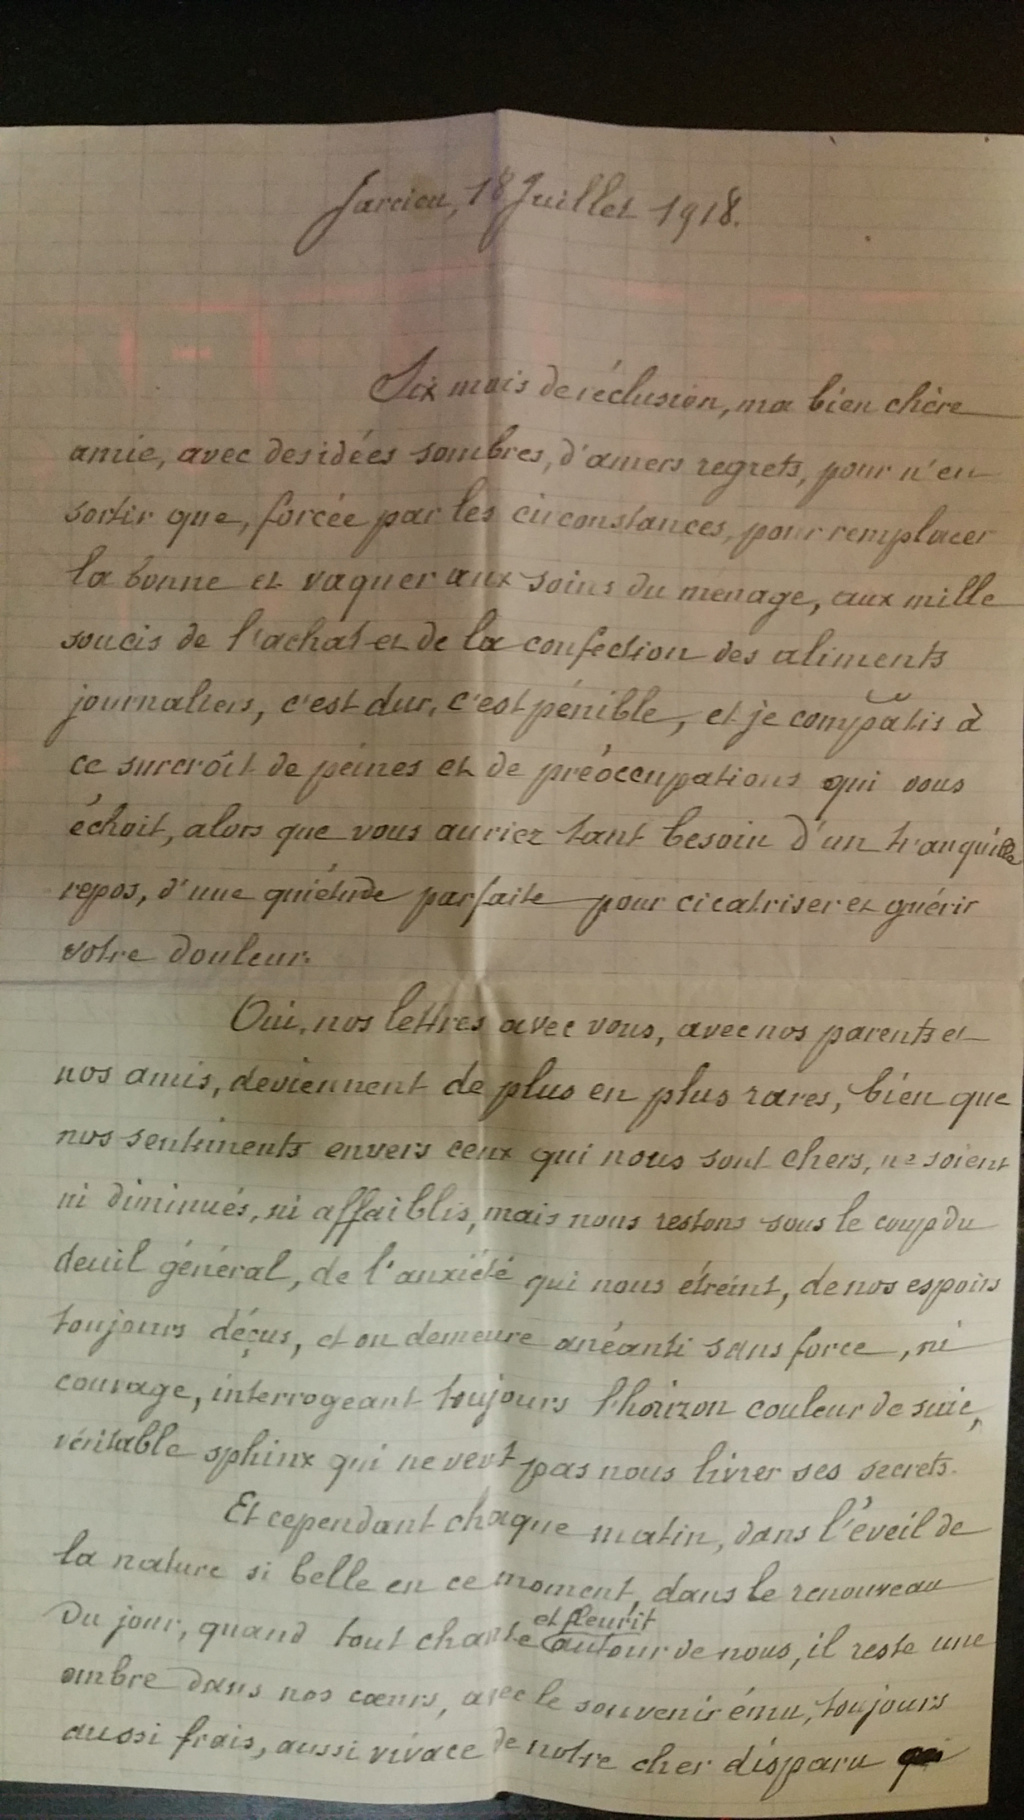 Jarcieu, 18 Juillet 1918.
Six mois de réclusion, ma bien chère
amie, avec des idées sombres, d'amers regrets, pour n'en
sortir que, forcée par les circonstances, pour remplacer
la bonne et vaquer aux soins du ménage, aux mille
soucis de l'achat et de la confection des aliments
journaliers, c'est dur, c'est pénible, et je compatis à
ce surcroît de peines et de préoccupations qui vous
échoit, alors que vous auriez tant besoin d'un tranquille
repos, d'une quiétude parfaite pour cicatriser et guérir
votre douleur.
Oui, nos lettres avec vous, avec nos parents et
nos amis, deviennent de plus en plus rares, bien que
nos sentiments envers ceux qui nous sont chers, ne soient
ni diminués, ni affaiblis, mais nous restons sous le coup du
deuil général, de l'anxiété qui nous étreint, de nos espoirs
toujours déçus, et on demeure anéanti sans force, ni
courage, interrogeant toujours l'horizon couleur de suie,
véritable sphinx qui ne veut pas nous livrer ses secrets.
Et cependant chaque matin, dans l'éveil de
la nature si belle en ce moment, dans le renouveau
du jour, quand tout chante et fleurit autour de nous, il reste une
ombre dans nos cœurs, avec le souvenir ému, toujours
aussi frais, aussi vivace de notre cher disparu